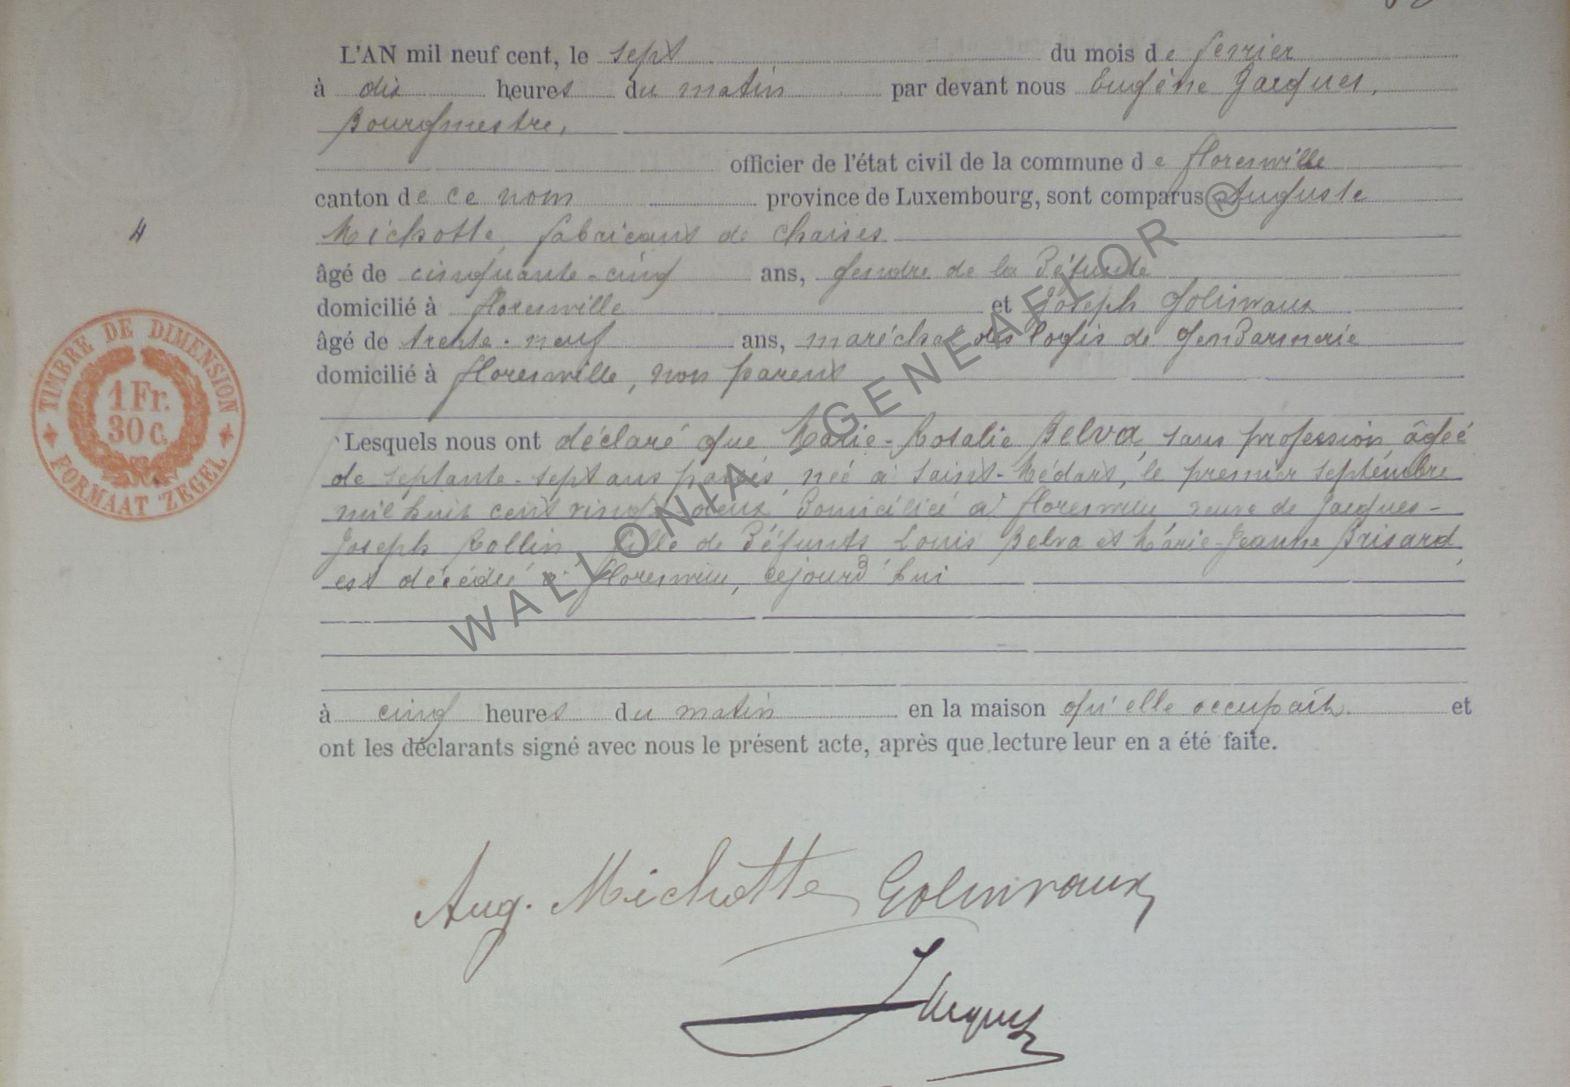 L'AN mil neuf cent, le sept du mois de fevrier
à dix heures du matin par devant nous Eugène Jacques,
Bourgmestre,
officier de l'état civil de la commune de florenville
canton de ce nom province de Luxembourg, sont comparus Auguste
4
Michotte, fabricant de chaises
âgé de cinquante-cinq ans, gendre de la Défunte
domicilié à florenville et Joseph Golinvaux
âgé de trente-neuf ans, maréchal des logis de gendarmerie
domicilié à florenville, non parent
TIMBRE DE DIMENSION
1 Fr.
30 C.
FORMAAT ZEGEL
Lesquels nous ont déclaré que Marie-Rosalie Belva, sans profession âgée
de septante-sept ans passés, née à Saint-Médard, le premier septembre
mil huit cent vingt deux Domiciliée à florenville veuve de Jacques-
Joseph Rollin, fille de Défunts Louis Belva et Marie-Jeanne Brisard,
est décédée à florenville, cejourd'hui
à cinq heures du matin en la maison qu'elle occupait. et
ont les déclarants signé avec nous le présent acte, après que lecture leur en a été faite.
Aug. Michotte Golinvaux
Jacques
WALLONIA GENEAFLOR ®